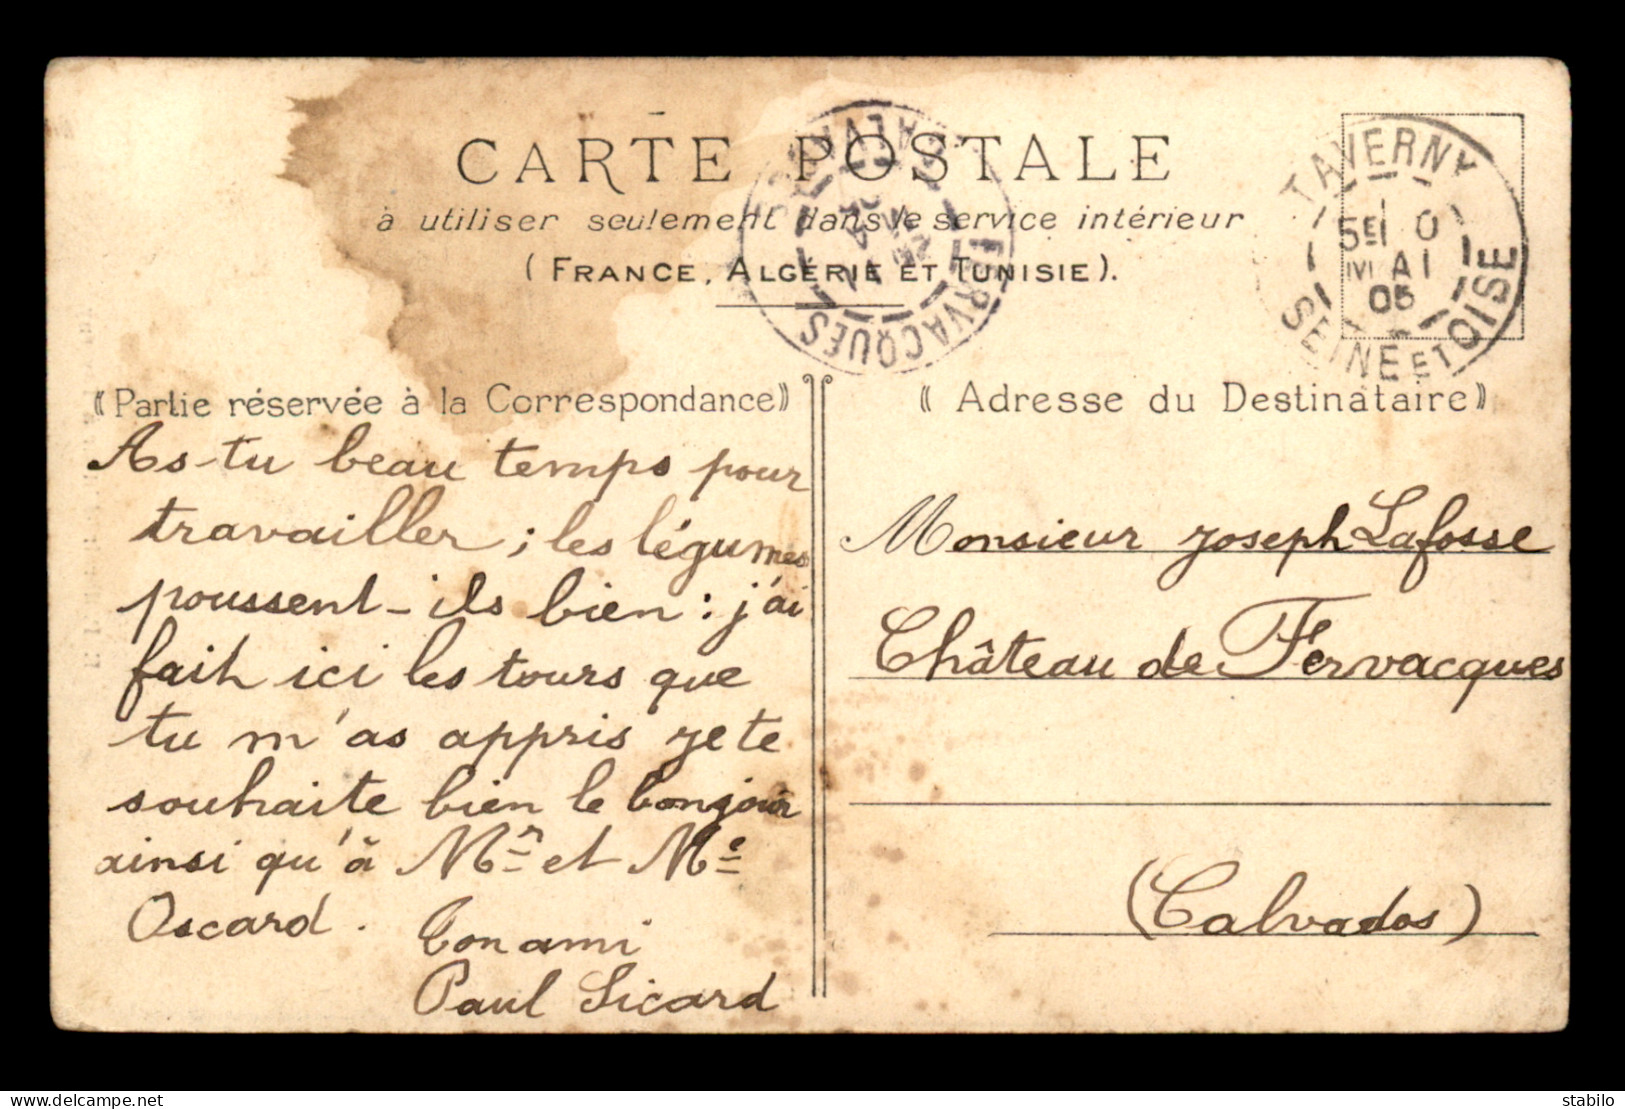 CARTE POSTALE
à utiliser seulement dans le service intérieur
(FRANCE, ALGÉRIE ET TUNISIE).
TAVERNY
MAI
05
SEINE ET OISE
FERVACQUES
CALVADOS
« Partie réservée à la Correspondance »
As-tu beau temps pour
travailler ; les légumes
poussent-ils bien : j'ai
fait ici les tours que
tu m'as appris je te
souhaite bien le bonjour
ainsi qu'à Mr et Me
Oscard.
Ton ami
Paul Sicard
« Adresse du Destinataire »
Monsieur Joseph Lafosse
Château de Fervacques
(Calvados)
delcampe.net
stabilo